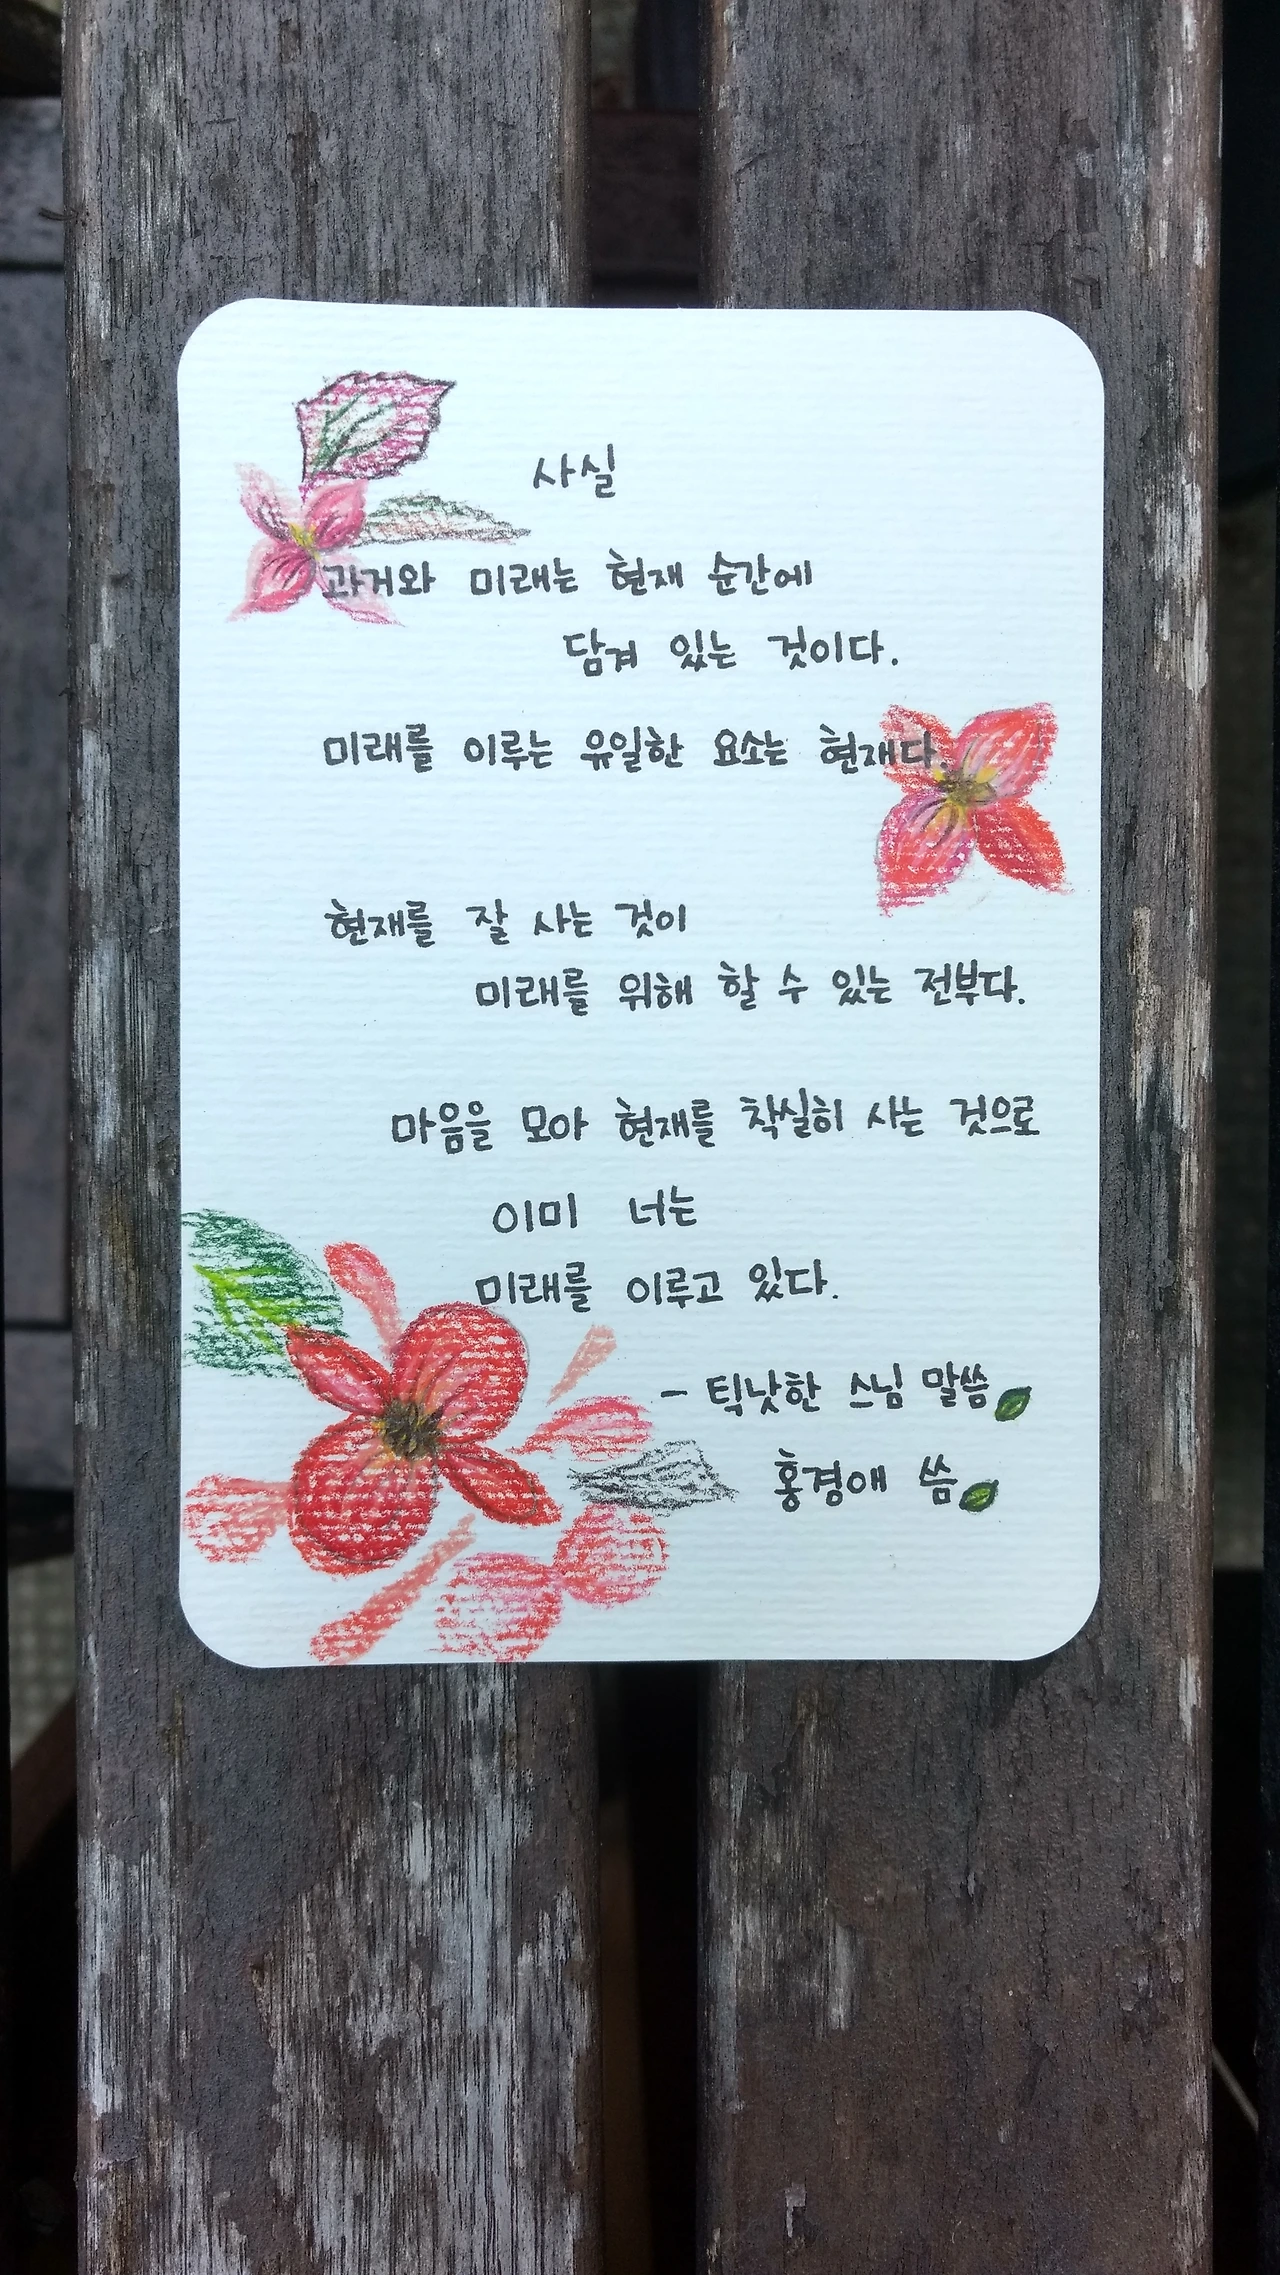 사실
과거와 미래는 현재 순간에
담겨 있는 것이다.
미래를 이루는 유일한 요소는 현재다.
현재를 잘 사는 것이
미래를 위해 할 수 있는 전부다.
마음을 모아 현재를 착실히 사는 것으로
이미 너는
미래를 이루고 있다.
- 틱낫한 스님 말씀
홍경애 씀